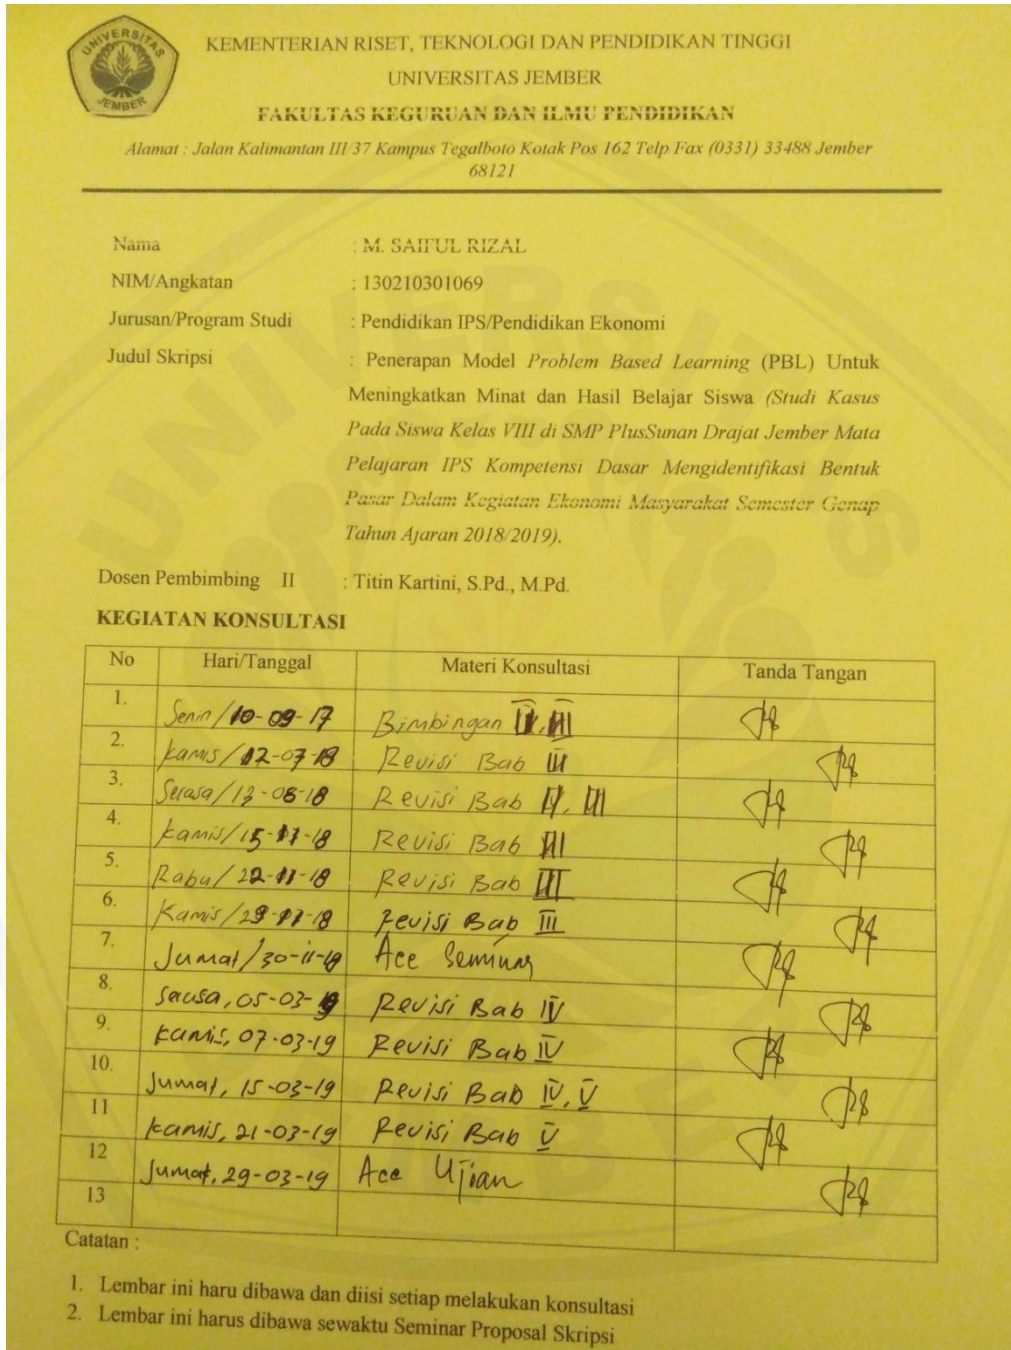 UNIVERSITAS
JEMBER
KEMENTERIAN RISET, TEKNOLOGI DAN PENDIDIKAN TINGGI
UNIVERSITAS JEMBER
FAKULTAS KEGURUAN DAN ILMU PENDIDIKAN
Alamat : Jalan Kalimantan III/37 Kampus Tegalboto Kotak Pos 162 Telp Fax (0331) 33488 Jember
68121
Nama : M. SAIFUL RIZAL
NIM/Angkatan : 130210301069
Jurusan/Program Studi : Pendidikan IPS/Pendidikan Ekonomi
Judul Skripsi : Penerapan Model Problem Based Learning (PBL) Untuk
Meningkatkan Minat dan Hasil Belajar Siswa (Studi Kasus
Pada Siswa Kelas VIII di SMP PlusSunan Drajat Jember Mata
Pelajaran IPS Kompetensi Dasar Mengidentifikasi Bentuk
Pasar Dalam Kegiatan Ekonomi Masyarakat Semester Genap
Tahun Ajaran 2018/2019).
Dosen Pembimbing II : Titin Kartini, S.Pd., M.Pd.
KEGIATAN KONSULTASI
No Hari/Tanggal Materi Konsultasi Tanda Tangan
1. Senin/10-09-17 Bimbingan II, III
2. Kamis/12-07-18 Revisi Bab III
3. Selasa/13-08-18 Revisi Bab II, III
4. Kamis/15-11-18 Revisi Bab III
5. Rabu/22-11-18 Revisi Bab III
6. Kamis/29-11-18 Revisi Bab III
7. Jumat/30-11-18 Acc Seminar
8. Selasa, 05-03-19 Revisi Bab IV
9. Kamis, 07-03-19 Revisi Bab IV
10. Jumat, 15-03-19 Revisi Bab IV, V
11 Kamis, 21-03-19 Revisi Bab V
12 Jumat, 29-03-19 Acc Ujian
13
Catatan :
1. Lembar ini haru dibawa dan diisi setiap melakukan konsultasi
2. Lembar ini harus dibawa sewaktu Seminar Proposal Skripsi